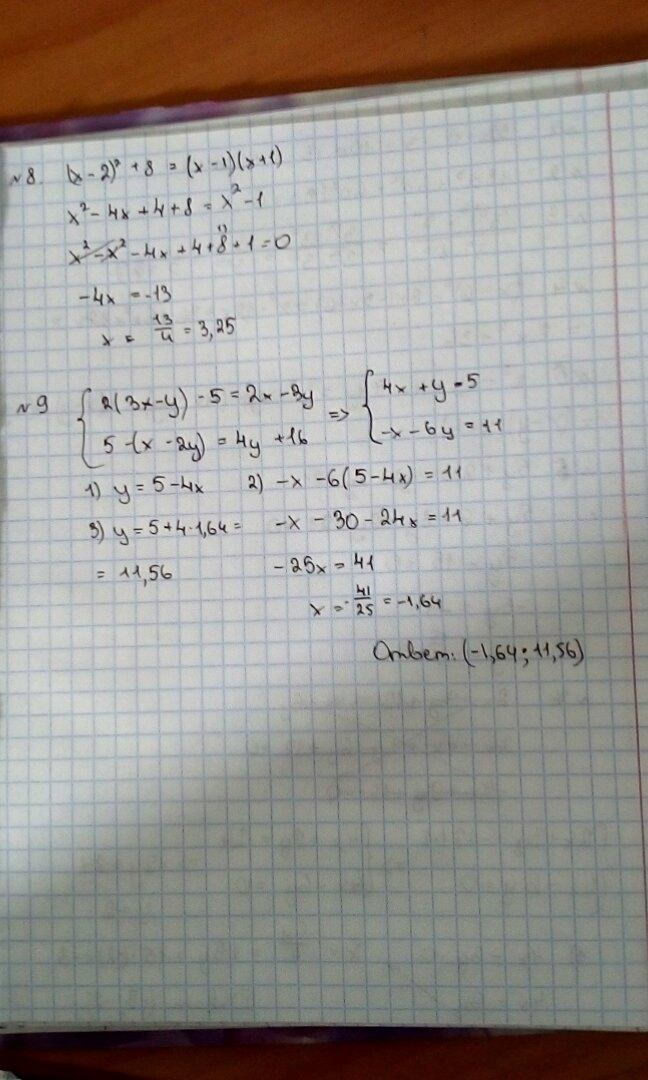 №8. (x-2)² + 8 = (x-1)(x+1)
x² - 4x + 4 + 8 = x² - 1
x² - x² - 4x + 4 + 8 + 1 = 0
-4x = -13
x = 13/4 = 3,25
№9 { 2(3x-y) - 5 = 2x - 3y => { 4x + y = 5
5 - (x - 2y) = 4y + 16 -x - 6y = 11
1) y = 5 - 4x 2) -x - 6(5-4x) = 11
3) y = 5 + 4·1,64 = -x - 30 - 24x = 11
= 11,56 -25x = 41
x = -41/25 = -1,64
Ответ: (-1,64; 11,56)